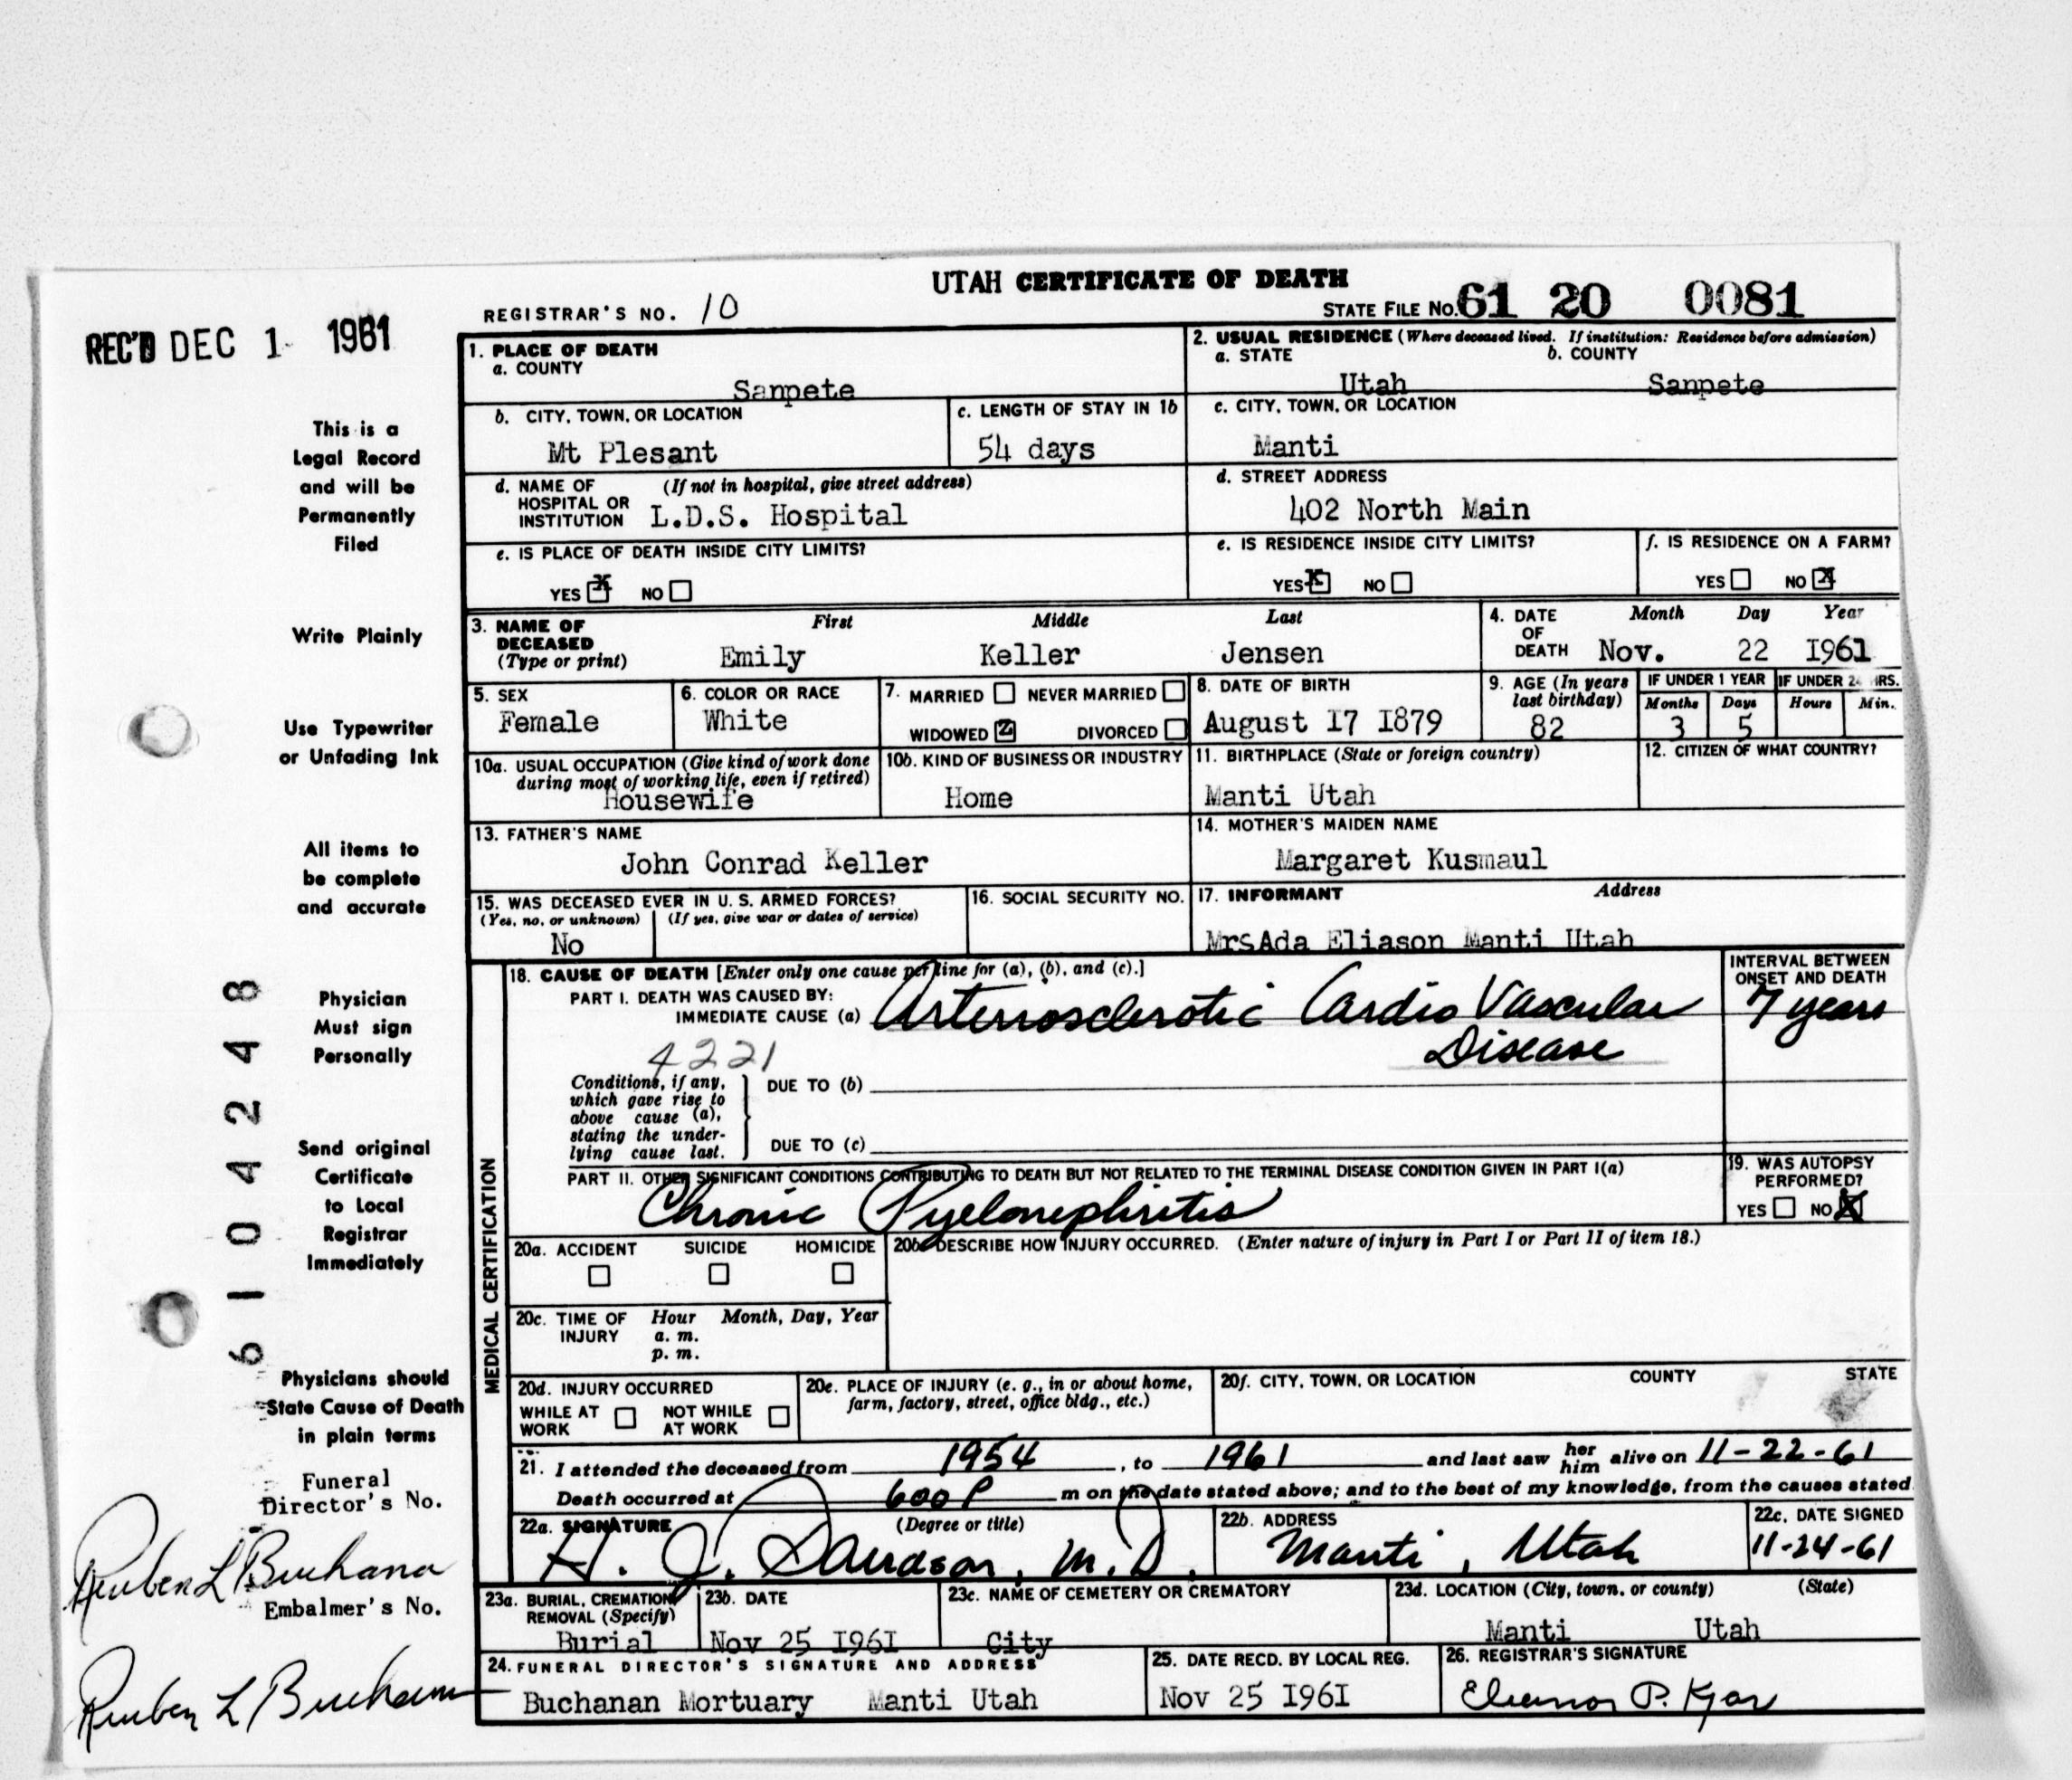 UTAH CERTIFICATE OF DEATH
REGISTRAR'S NO. 10
STATE FILE NO. 61 20 0081
REC'D DEC 1 1961
This is a
Legal Record
and will be
Permanently
Filed
Write Plainly
Use Typewriter
or Unfading Ink
All items to
be complete
and accurate
Physician
Must sign
Personally
Send original
Certificate
to Local
Registrar
Immediately
Physicians should
State Cause of Death
in plain terms
Funeral
Director's No.
Reuben L Buchana
Embalmer's No.
Reuben L Buchanan
6104248
1. PLACE OF DEATH
a. COUNTY
Sanpete
2. USUAL RESIDENCE (Where deceased lived. If institution: Residence before admission)
a. STATE b. COUNTY
Utah Sanpete
b. CITY, TOWN, OR LOCATION
Mt Plesant
c. LENGTH OF STAY IN 1b
54 days
c. CITY, TOWN, OR LOCATION
Manti
d. NAME OF (If not in hospital, give street address)
HOSPITAL OR
INSTITUTION L.D.S. Hospital
d. STREET ADDRESS
402 North Main
e. IS PLACE OF DEATH INSIDE CITY LIMITS?
YES X NO
e. IS RESIDENCE INSIDE CITY LIMITS?
YES X NO
f. IS RESIDENCE ON A FARM?
YES NO X
3. NAME OF First Middle Last
DECEASED
(Type or print) Emily Keller Jensen
4. DATE Month Day Year
OF
DEATH Nov. 22 1961
5. SEX
Female
6. COLOR OR RACE
White
7. MARRIED NEVER MARRIED
WIDOWED DIVORCED
8. DATE OF BIRTH
August 17 1879
9. AGE (In years
last birthday)
82
IF UNDER 1 YEAR
Months Days
3 5
IF UNDER 24 HRS.
Hours Min.
10a. USUAL OCCUPATION (Give kind of work done
during most of working life, even if retired)
Housewife
10b. KIND OF BUSINESS OR INDUSTRY
Home
11. BIRTHPLACE (State or foreign country)
Manti Utah
12. CITIZEN OF WHAT COUNTRY?
13. FATHER'S NAME
John Conrad Keller
14. MOTHER'S MAIDEN NAME
Margaret Kusmaul
15. WAS DECEASED EVER IN U. S. ARMED FORCES?
(Yes, no, or unknown) (If yes, give war or dates of service)
No
16. SOCIAL SECURITY NO.
17. INFORMANT Address
MrsAda Eliason Manti Utah
MEDICAL CERTIFICATION
18. CAUSE OF DEATH [Enter only one cause per line for (a), (b), and (c).]
PART I. DEATH WAS CAUSED BY:
IMMEDIATE CAUSE (a) Arteriosclerotic Cardio Vascular
Disease
INTERVAL BETWEEN
ONSET AND DEATH
7 years
4221
Conditions, if any,
which gave rise to
above cause (a),
stating the under-
lying cause last.
DUE TO (b)
DUE TO (c)
PART II. OTHER SIGNIFICANT CONDITIONS CONTRIBUTING TO DEATH BUT NOT RELATED TO THE TERMINAL DISEASE CONDITION GIVEN IN PART I(a)
Chronic Pyelonephritis
19. WAS AUTOPSY
PERFORMED?
YES NO X
20a. ACCIDENT SUICIDE HOMICIDE
20b. DESCRIBE HOW INJURY OCCURRED. (Enter nature of injury in Part I or Part II of item 18.)
20c. TIME OF Hour Month, Day, Year
INJURY a. m.
p. m.
20d. INJURY OCCURRED
WHILE AT NOT WHILE
WORK AT WORK
20e. PLACE OF INJURY (e. g., in or about home,
farm, factory, street, office bldg., etc.)
20f. CITY, TOWN, OR LOCATION COUNTY STATE
21. I attended the deceased from 1954, to 1961 and last saw her him alive on 11-22-61
Death occurred at 600 P m on the date stated above; and to the best of my knowledge, from the causes stated
22a. SIGNATURE (Degree or title)
H. J. M.D.
22b. ADDRESS
Manti, Utah
22c. DATE SIGNED
11-24-61
23a. BURIAL, CREMATION
REMOVAL (Specify)
Burial
23b. DATE
Nov 25 1961
23c. NAME OF CEMETERY OR CREMATORY
City
23d. LOCATION (City, town, or county) (State)
Manti Utah
24. FUNERAL DIRECTOR'S SIGNATURE AND ADDRESS
Buchanan Mortuary Manti Utah
25. DATE RECD. BY LOCAL REG.
Nov 25 1961
26. REGISTRAR'S SIGNATURE
Eleanor P. Kjar